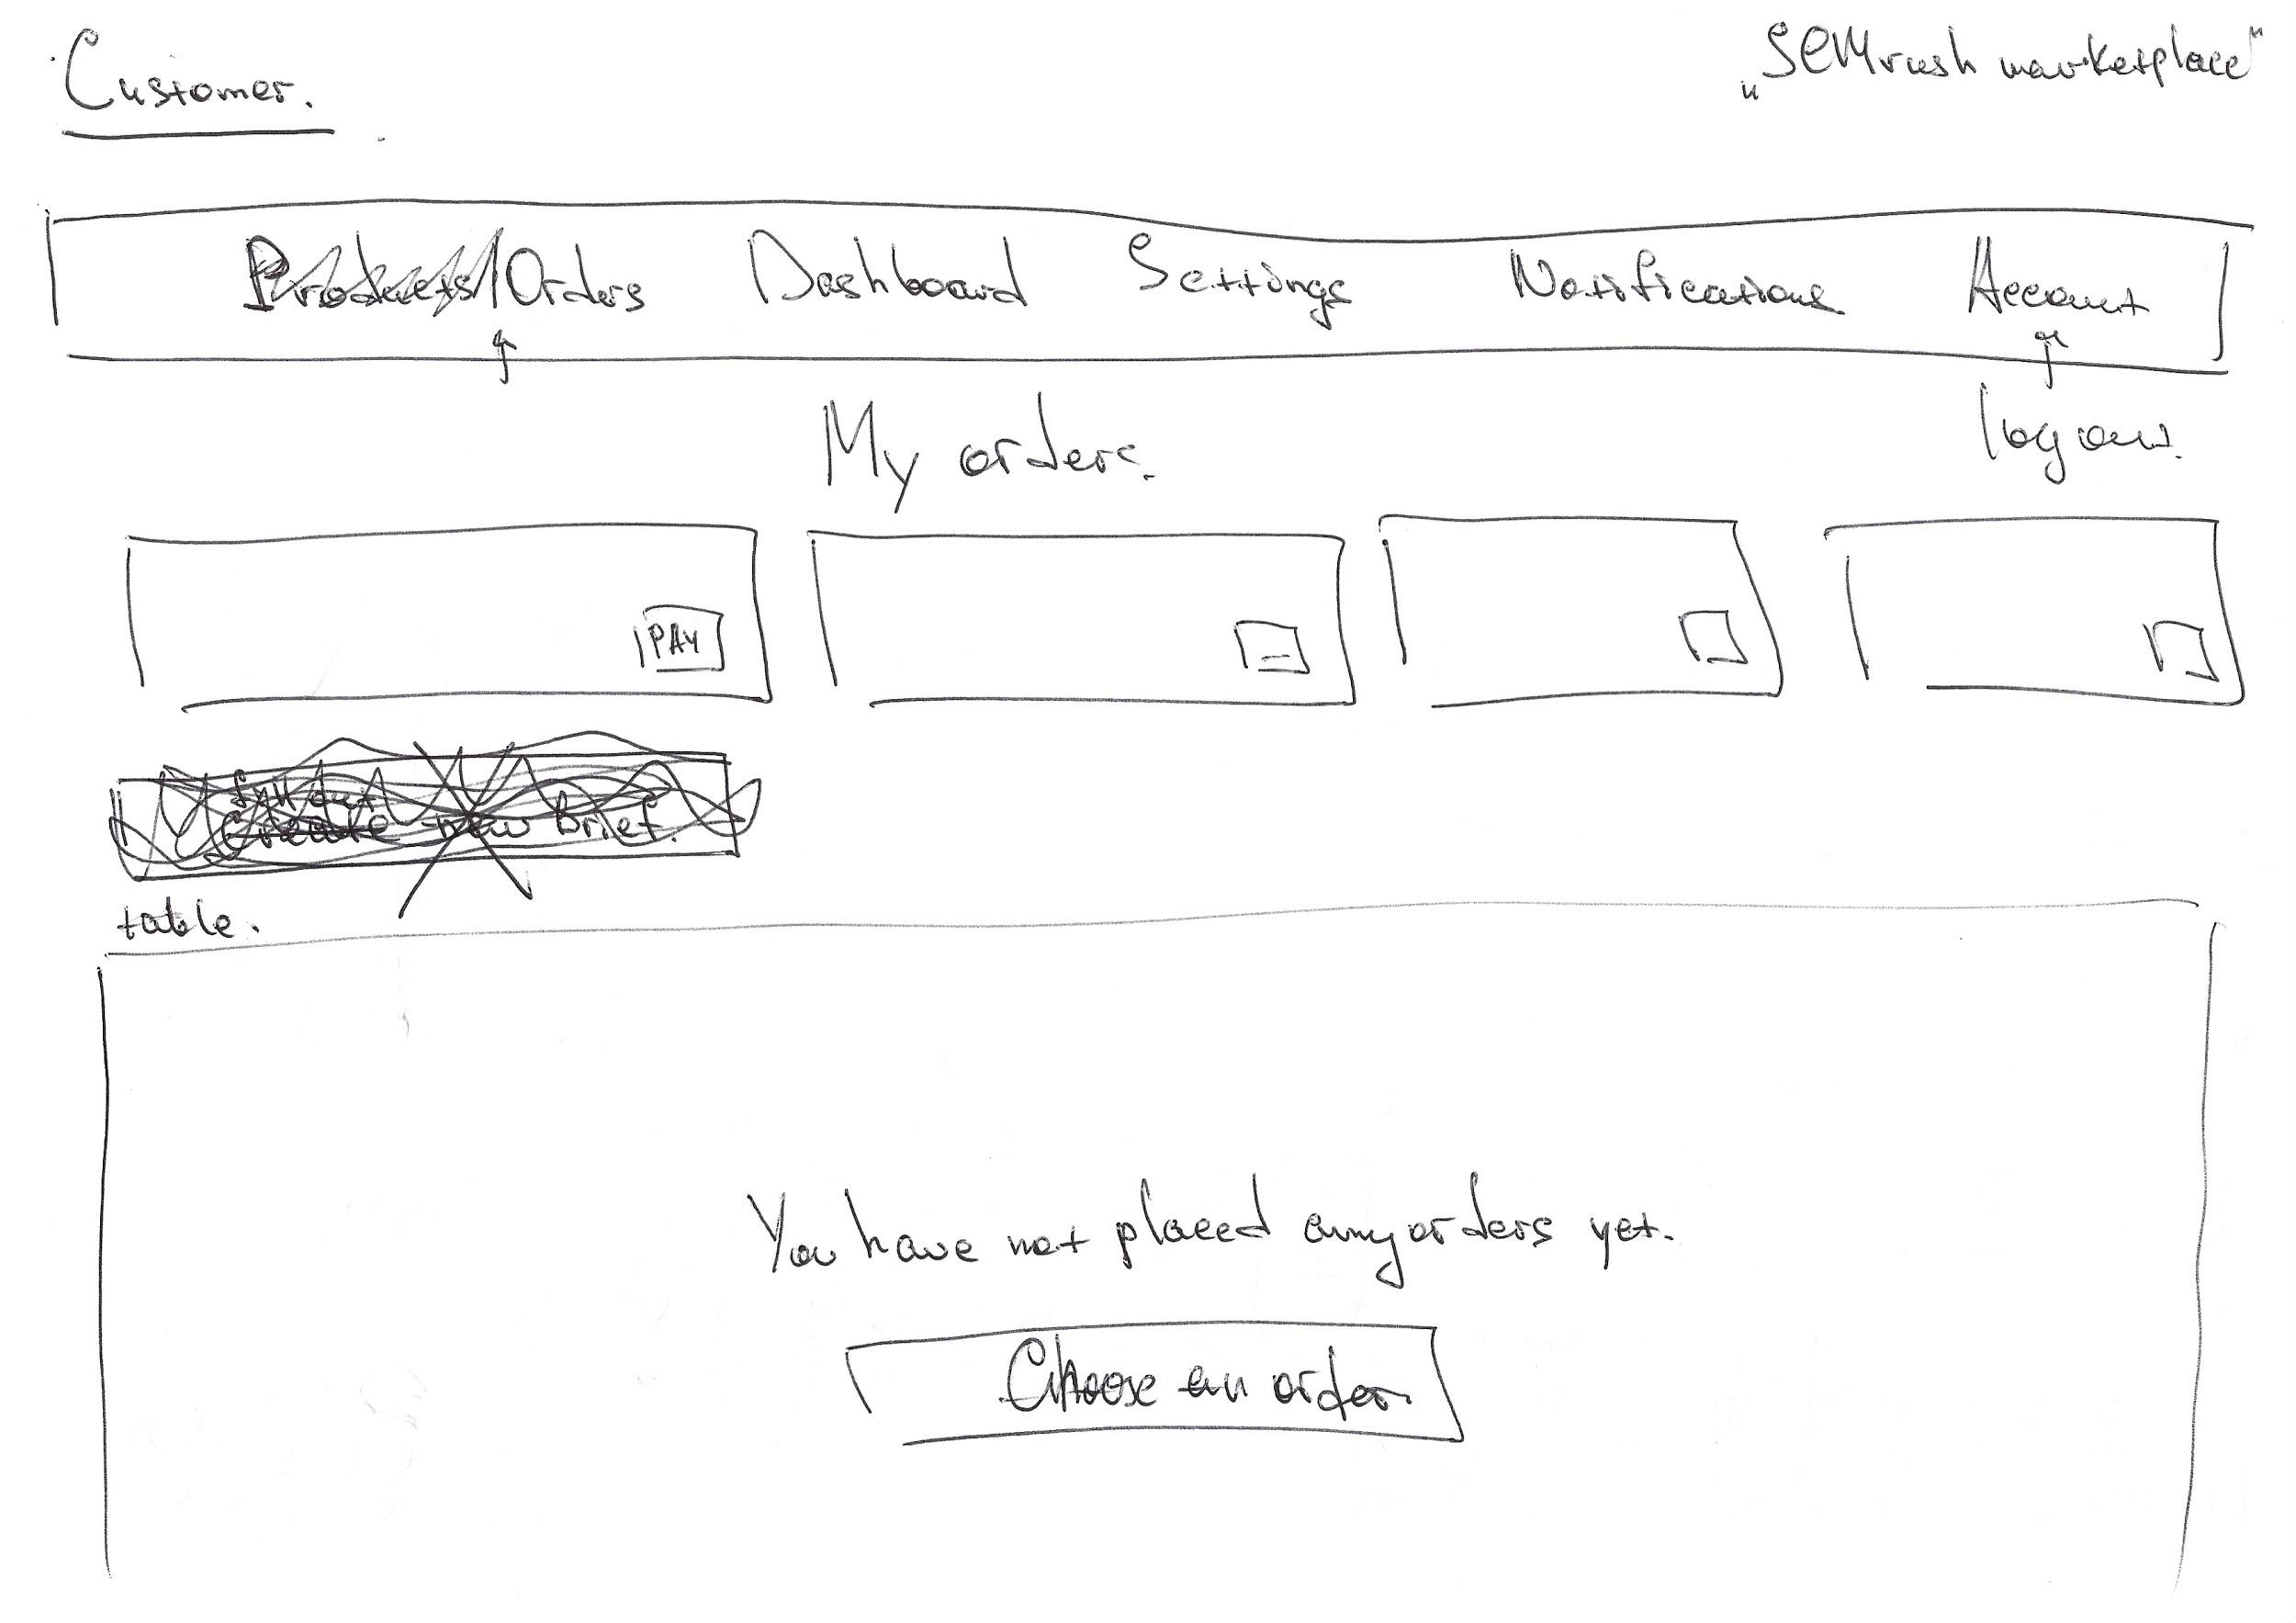 Customer.
„SEMrush marketplace"
Products/Orders Dashboard Settings Notifications Account
My orders.
log out.
PAY
Create new brief.
table.
You have not placed any orders yet.
Choose an order.